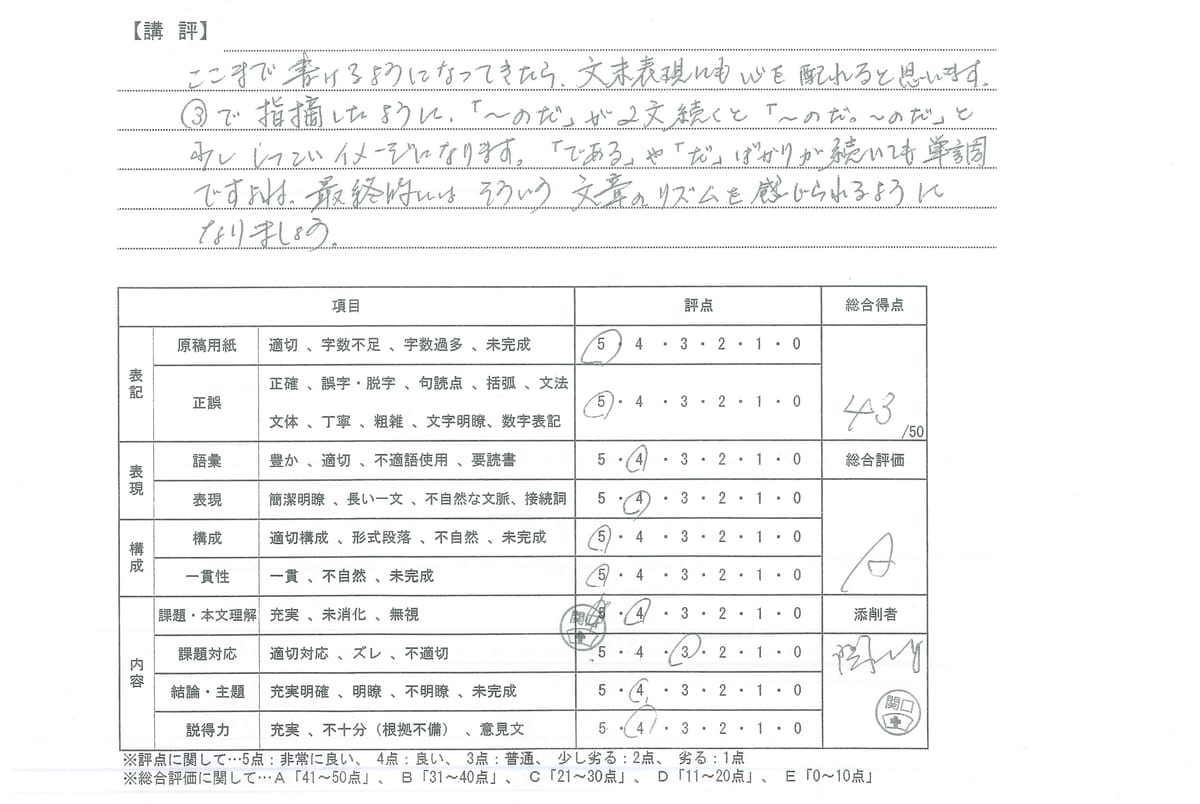 【講 評】
ここまで書けるようになってきたら、文末表現にも心を配れると思います。
③で指摘したように、「～のだ」が2文続くと「～のだ。～のだ」と
少ししつこいイメージになります。「である」や「だ」ばかりが続いても単調
ですよね。最終的には そういう 文章のリズムを感じられるように
なりましょう。
項目 評点 総合得点
表記 原稿用紙 適切 、字数不足 、字数過多 、未完成 5・4・3・2・1・0
正誤 正確 、誤字・脱字 、句読点 、括弧 、文法
文体 、丁寧 、粗雑 、文字明瞭、数字表記 5・4・3・2・1・0 43 /50
表現 語彙 豊か 、適切 、不適語使用 、要読書 5・4・3・2・1・0 総合評価
表現 簡潔明瞭 、長い一文 、不自然な文脈、接続詞 5・4・3・2・1・0
構成 構成 適切構成 、形式段落 、不自然 、未完成 5・4・3・2・1・0 A
一貫性 一貫 、不自然 、未完成 5・4・3・2・1・0
内容 課題・本文理解 充実 、未消化 、無視 関口 5・4・3・2・1・0 添削者
課題対応 適切対応 、ズレ 、不適切 5・4・3・2・1・0
結論・主題 充実明確 、明瞭 、不明瞭 、未完成 5・4・3・2・1・0 関口
説得力 充実 、不十分（根拠不備） 、意見文 5・4・3・2・1・0
※評点に関して…5点：非常に良い、 4点：良い、 3点：普通、 少し劣る：2点、 劣る：1点
※総合評価に関して…A「41～50点」、 B「31～40点」、 C「21～30点」、 D「11～20点」、 E「0～10点」